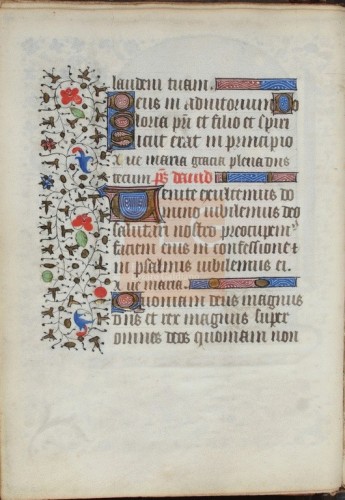 laudem tuam.
Deus in adiutorium
Gloria pri et filio et spiri
Sicut erat in principio
Aue maria gracia plena dns
tecum. ps dauid
Uenite exultemus do
mino iubilemus deo
salutari nostro preocupem9
faciem eius in confessione et
in psalmis iubilemus ei.
Aue maria.
Quoniam deus magnus
dns et rex magnus super
omnes deos quoniam non